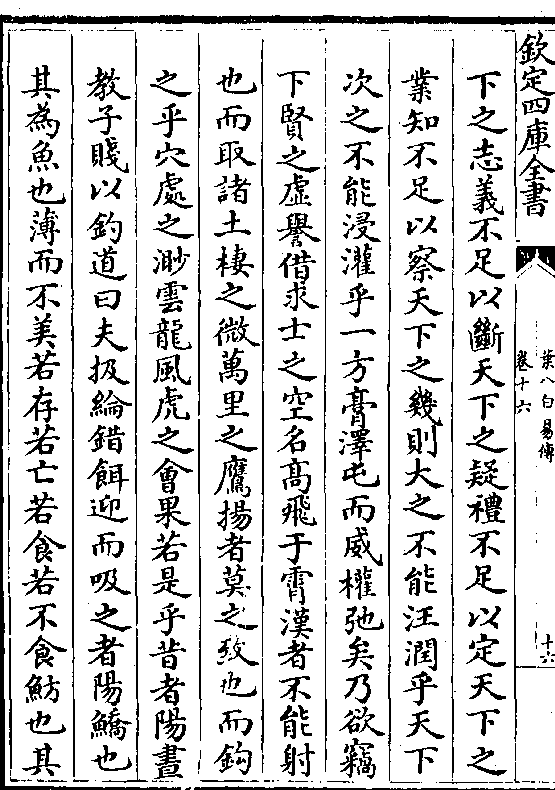 欽定四庫全書
葉八白易傳
卷十六
十六
下之志義不足以斷天下之疑禮不足以定天下之
業知不足以察天下之幾則大之不能汪潤乎天下
次之不能浸灌乎一方膏澤屯而威權弛矣乃欲竊
下賢之虛譽借求士之空名高飛于霄漢者不能射
也而取諸土棲之微萬里之鷹揚者莫之致也而鈎
之乎穴處之渺雲龍風虎之會果若是乎昔者陽晝
教子賤以釣道曰夫扱綸錯餌迎而吸之者陽鱎也
其為魚也薄而不美若存若亡若食若不食魴也其